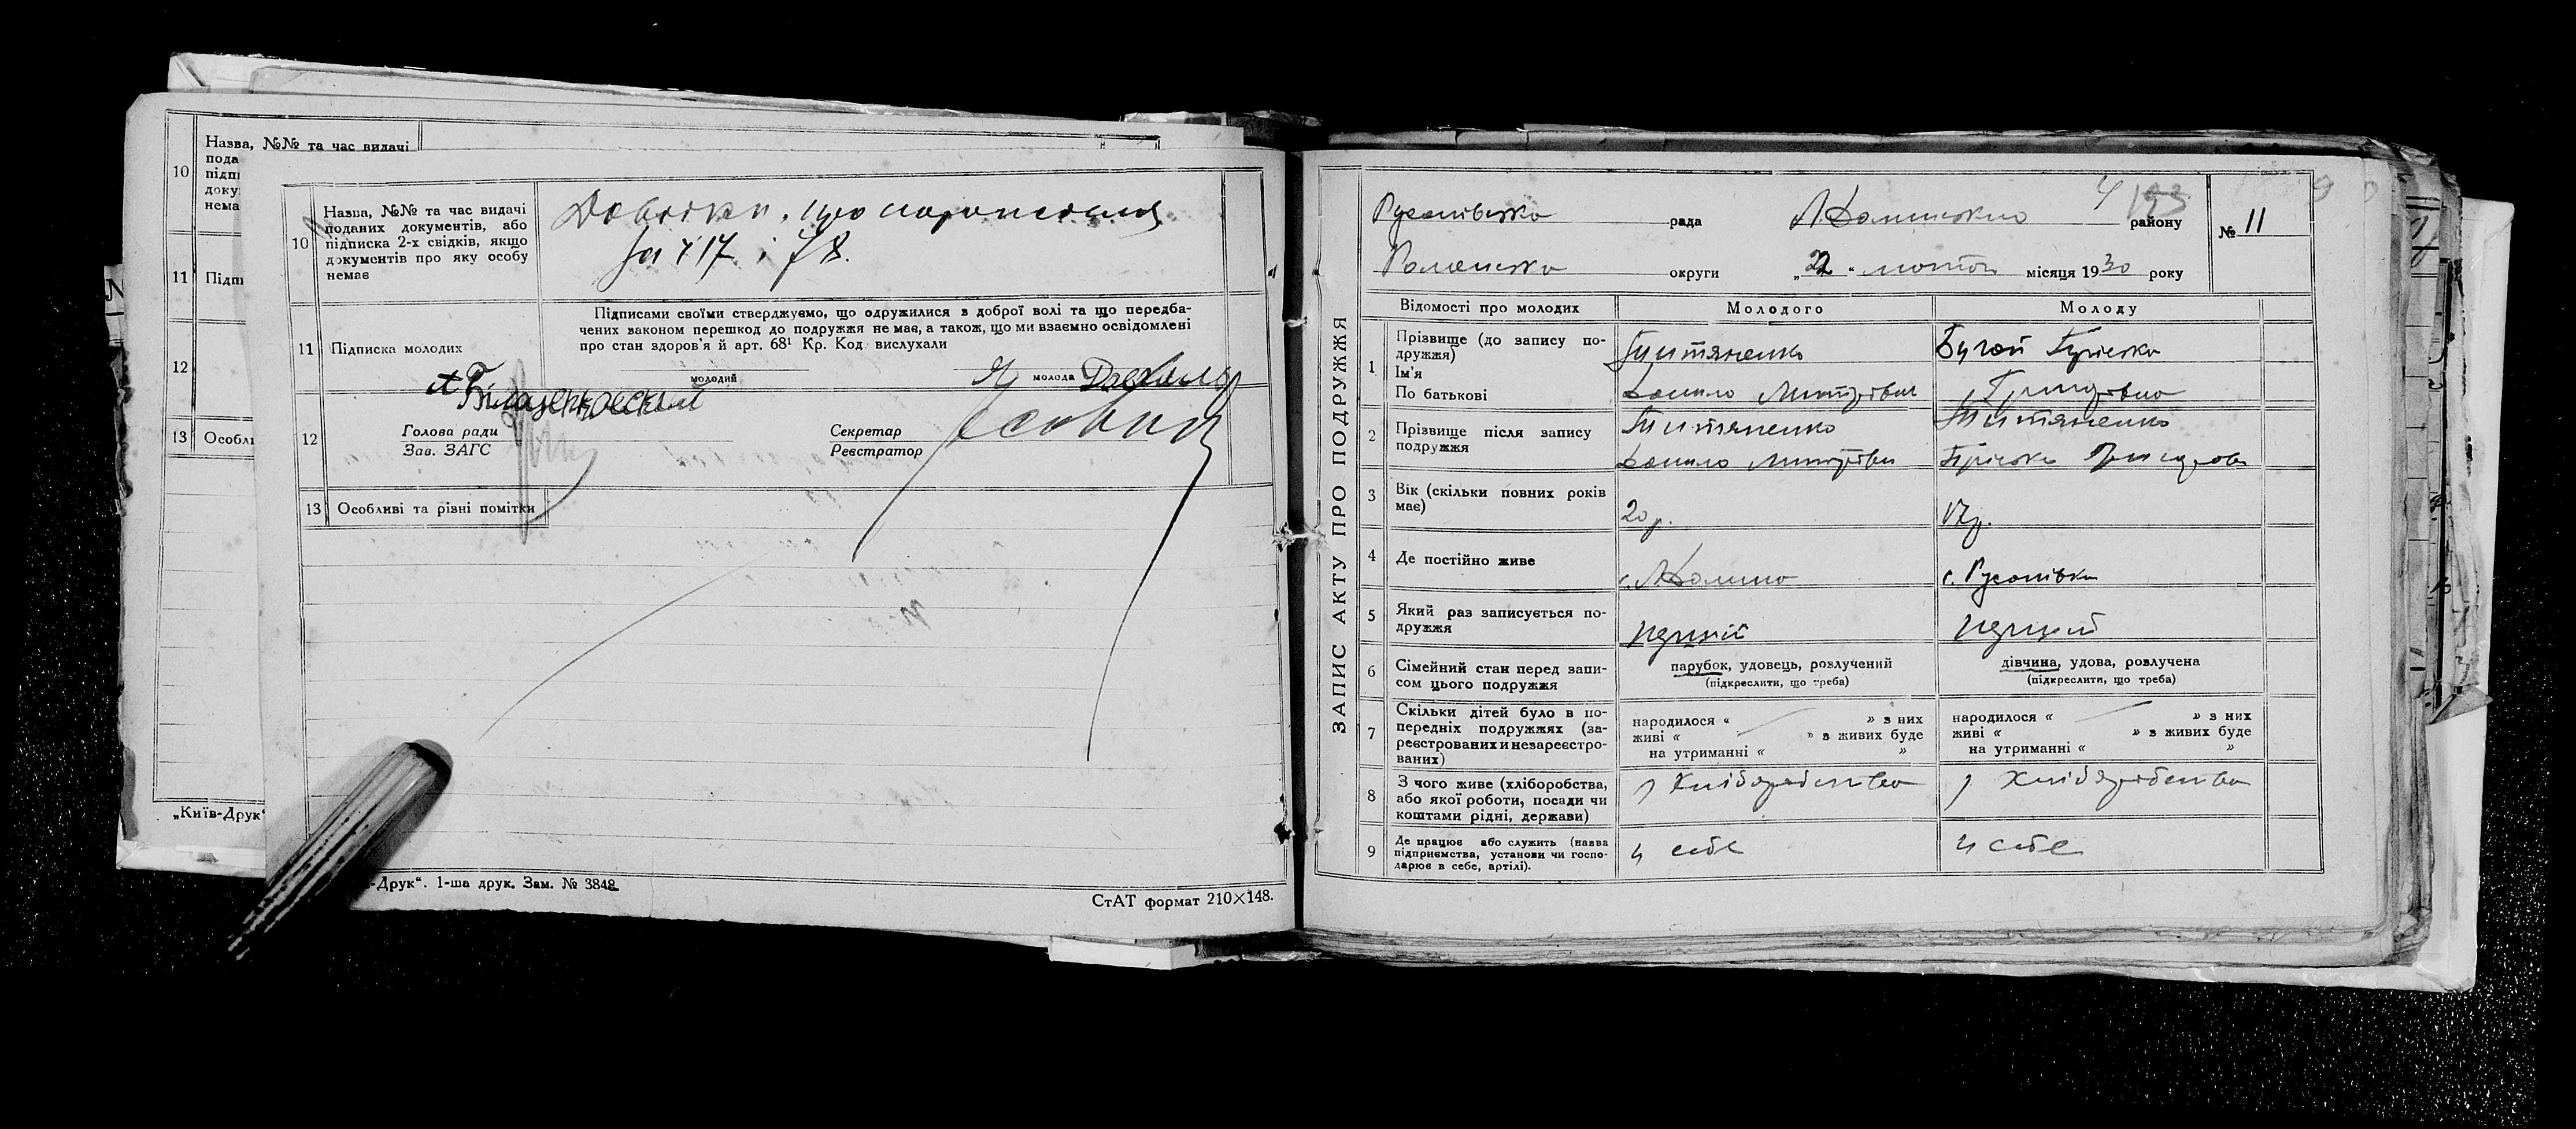 10
Назва, №№ та час видачі
пода
підпи
доку
нема
11 Підпи
12
13 Особл
„Київ-Друк“
10
Назва, №№ та час видачі
поданих документів, або
підписка 2-х свідків, якщо
документів про яку особу
немає
Довідки про народження
за № 17 і 78.
Підписами своїми стверджуємо, що одружилися з доброї волі та що передба-
чених законом перешкод до подружжя не має, а також, що ми взаємно освідомлені
про стан здоров'я й арт. 68¹ Кр. Код вислухали
11 Підписка молодих
молодий
молода
12
Голова ради
Зав. ЗАГС
Секретар
Реєстратор
13 Особливі та різні помітки
-Друк“. 1-ша друк. Зам. № 3848
СтАТ формат 210×148.
ЗАПИС АКТУ ПРО ПОДРУЖЖЯ
рада
району
№ 11
Роменська округи
„22“ лютого місяця 1930 року
Відомості про молодих
Молодого
Молоду
1
Прізвище (до запису по-
дружжя)
Ім'я
По батькові
Титяненко
Данило Дмитрович
Бугай Пріська
Григорівна
2
Прізвище після запису
подружжя
Титяненко
Данило
Титяненко
Пріська
3
Вік (скільки повних років
має)
20 р.
17 р.
4 Де постійно живе
с. Русанівка
5
Який раз записується по-
дружжя
перший
перший
6
Сімейний стан перед запи-
сом цього подружжя
парубок, удовець, розлучений
(підкреслити, що треба)
дівчина, удова, розлучена
(підкреслити, що треба)
7
Скільки дітей було в по-
передніх подружжях (за-
реєстрованих и незареєстро-
ваних)
народилося « » з них
живі « » з живих буде
на утриманні « »
народилося « » з них
живі « » з живих буде
на утриманні « »
8
З чого живе (хліборобства,
або якої роботи, посади чи
коштами рідні, держави)
з хліборобства
з хліборобства
9
Де працює або служить (назва
підприємства, установи чи госпо-
дарює в себе, артілі).
у себе
у себе